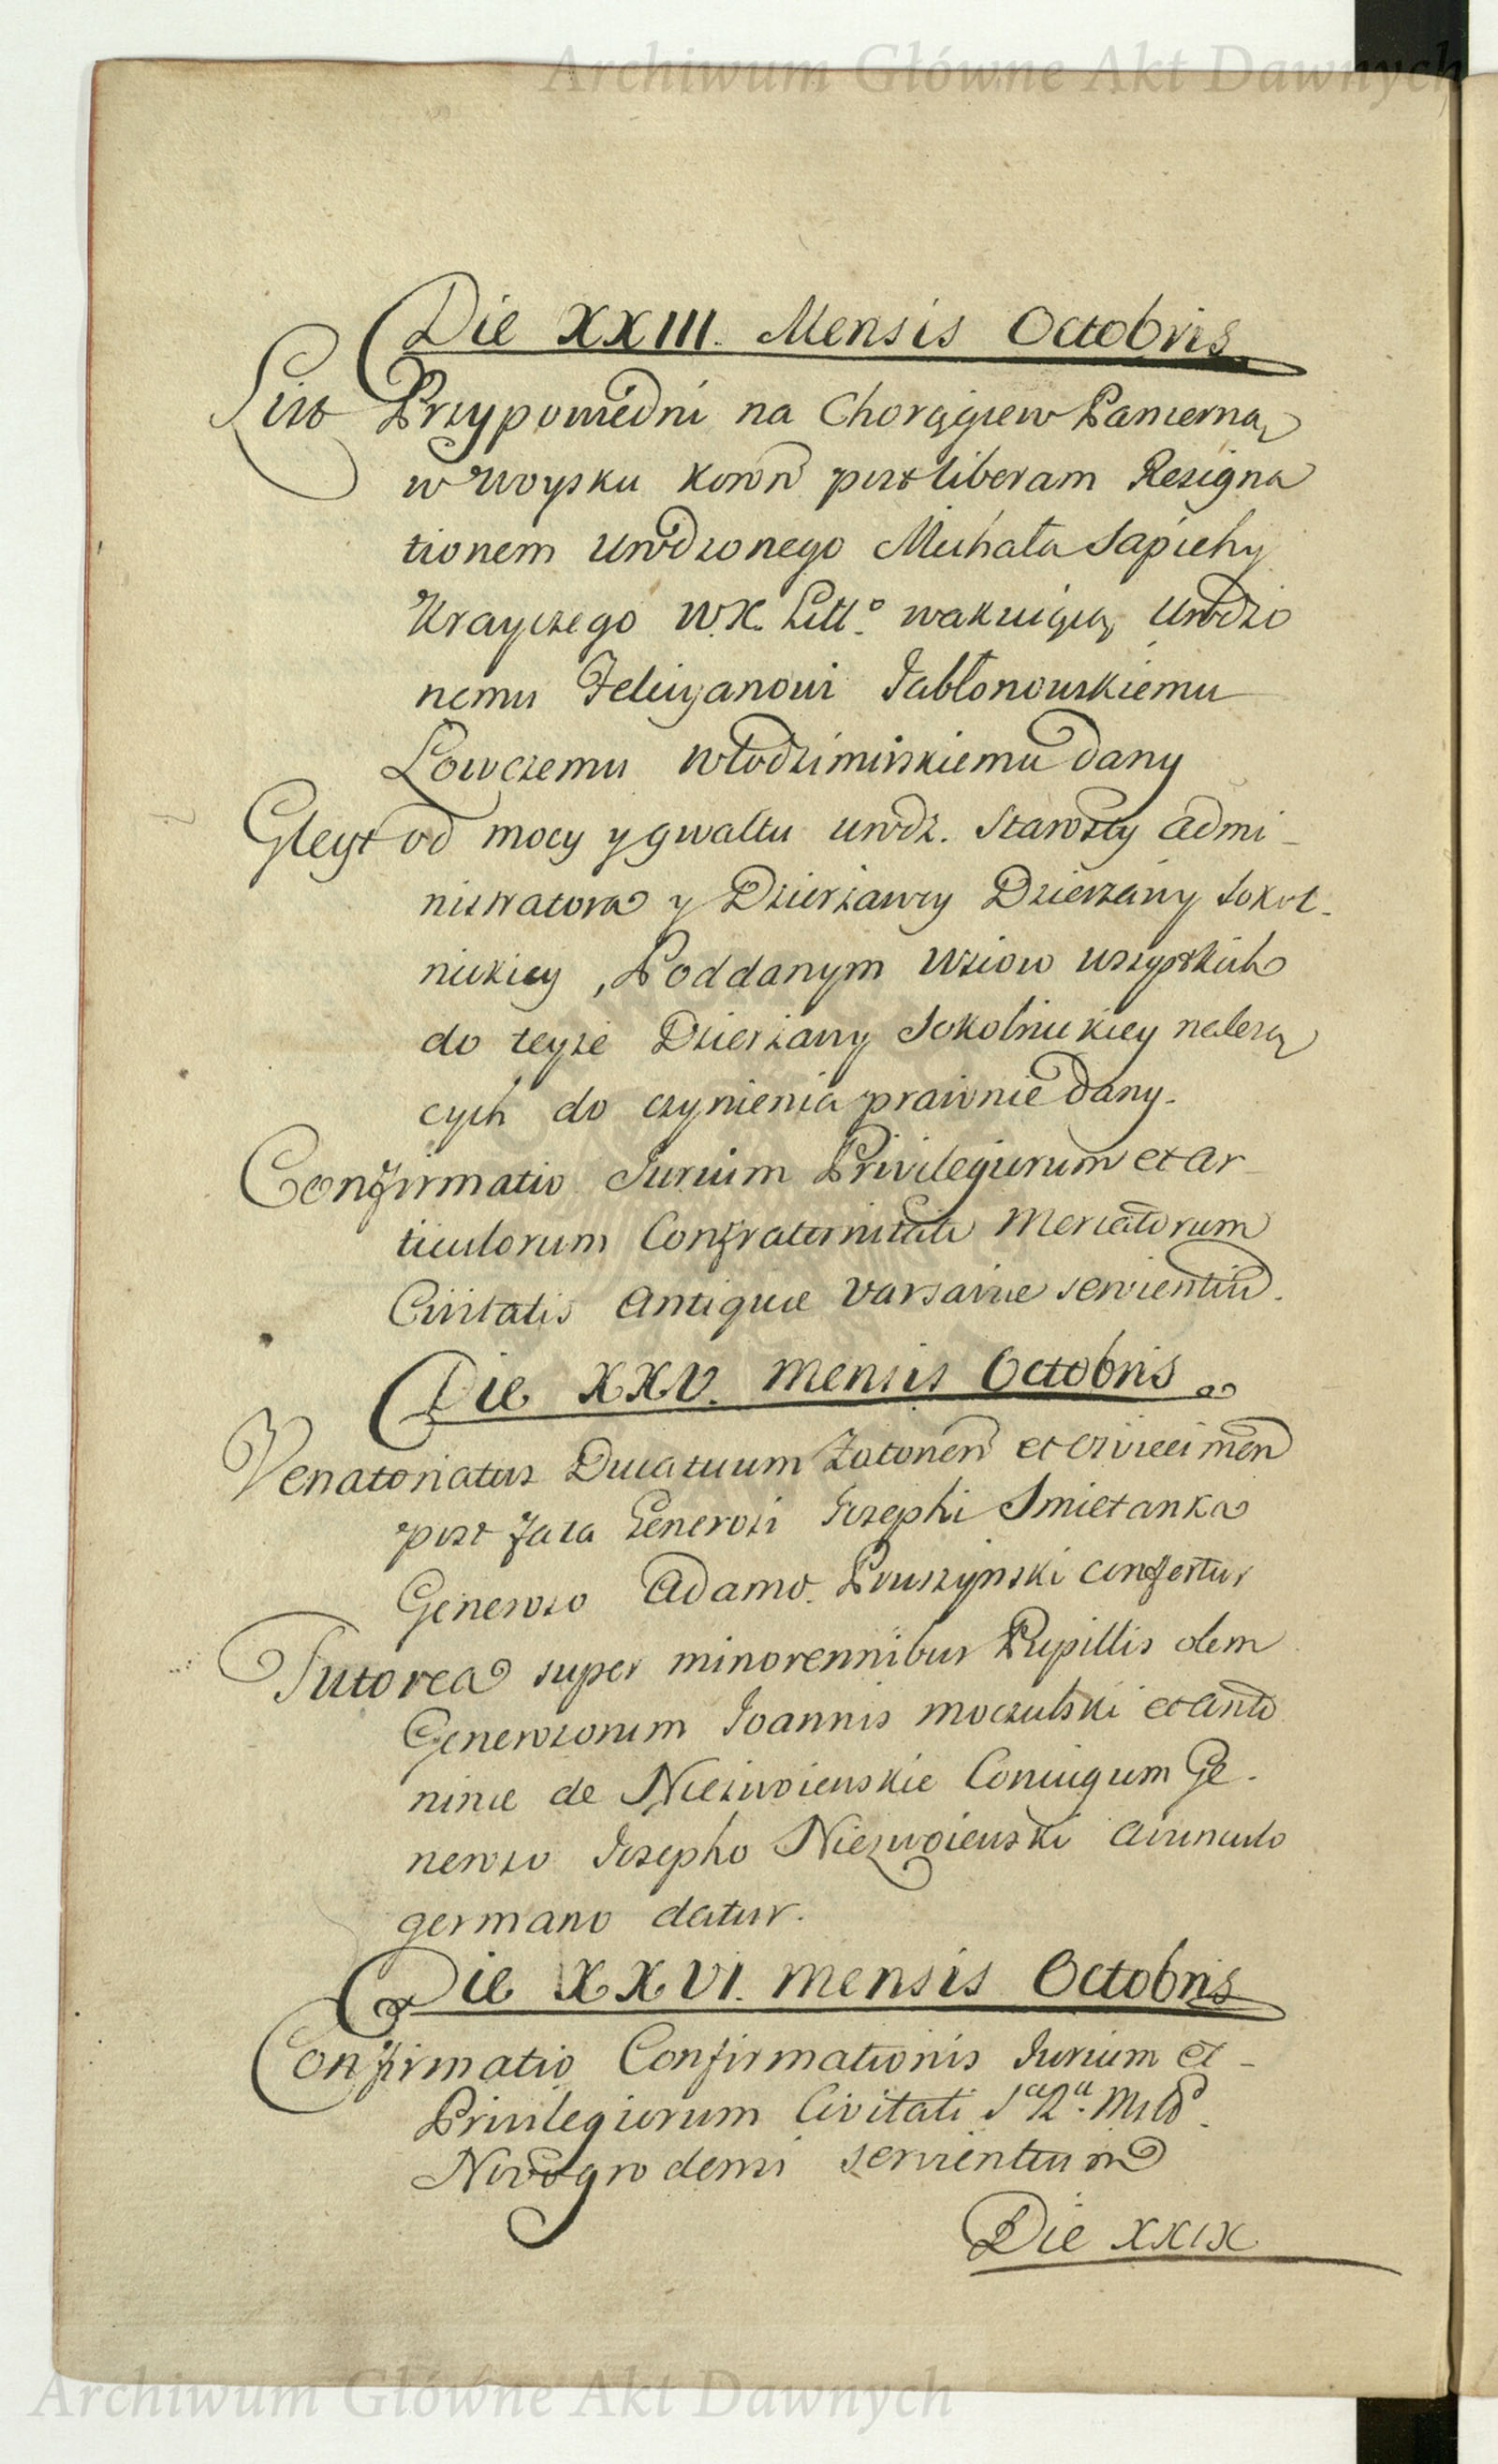 Archiwum Główne Akt Dawnych
Die XXIII. Mensis Octobris
List Przypowiedni na Chorągiew Pancerną
w Woysku Koron post liberam Resigna
tionem Urodzonego Michała Sapiehy
Krayczego W.X. Litt.º wakuiącą Urodzo
nemu Felicyanowi Jabłonowskiemu
Łowczemu Włodzimirskiemu dany
Gleyt od mocy y gwałtu urodz. Starosty admi-
nistratora y Dzierżawcy Dzierżawy Sokol-
nickiey, Poddanym Wsiow wszystkich
do teyże Dzierżawy Sokolnickiey należą
cych do czynienia prawnie dany.
Confirmatio Jurium Privilegiorum et ar
ticulorum Confraternitati Mercatorum
Civitatis Antiquae Varsaviae servientiu.
Die XXV. Mensis Octobris
Venatoriatus Ducatuum Zatoren et Osviecimen
post fata Generosi Josephi Smietanka
Generoso Adamo Pruszynski confertur
Tutorea super minorennibus Pupillis olem
Generosorum Joannis Moczulski et Anto
ninae de Niezwoienskie Coniugum Ge-
neroso Josepho Niezwoienski avunculo
germano datur.
Die XXVI. Mensis Octobris
Confirmatio Confirmationis Jurium et -
Privilegiorum Civitati
Novogrodensi servientium
Die XXIX
Archiwum Główne Akt Dawnych